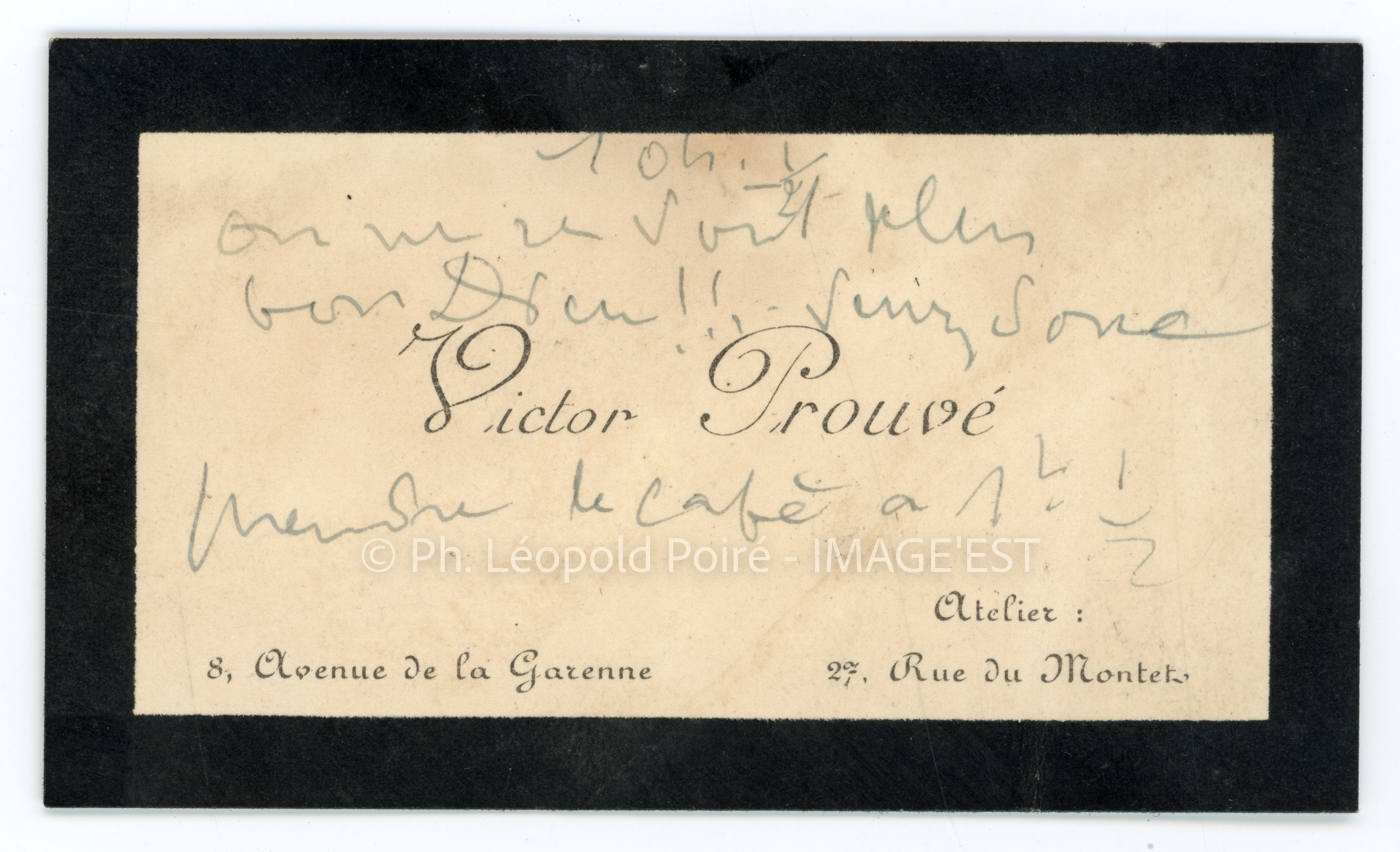 10h. 1/2
on ne se voit plus
bon Dieu !! . Venez donc
Victor Prouvé
prendre le café a 1h. 1/2
© Ph. Léopold Poiré - IMAGE'EST
Atelier :
8, Avenue de la Garenne
27, Rue du Montet